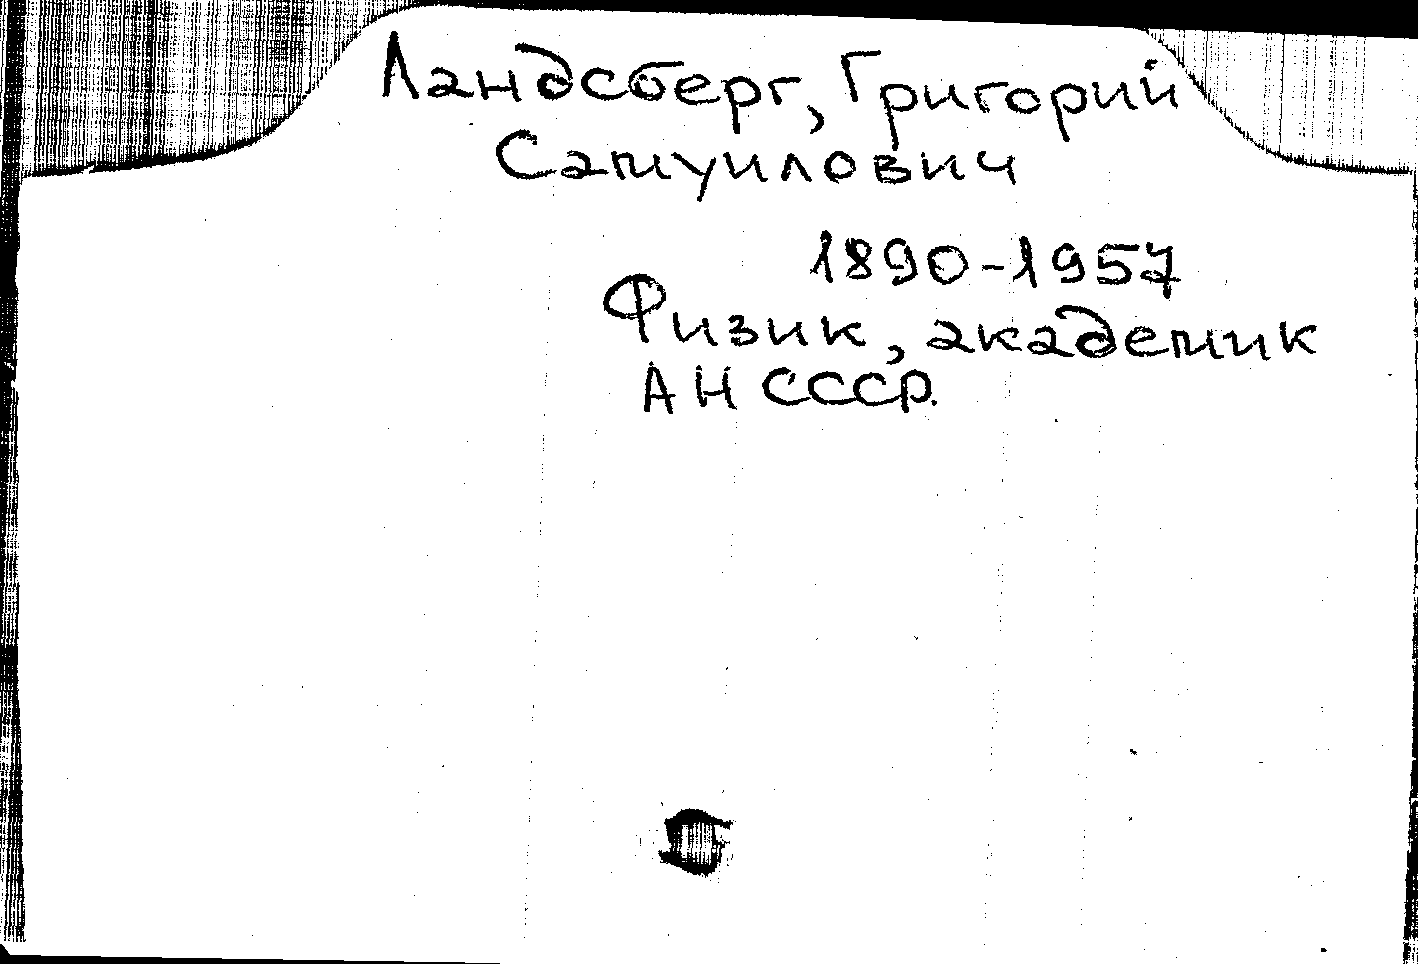 Ландсберг, Григорий
Самуилович
1890-1957
Физик, академик
АН СССР.